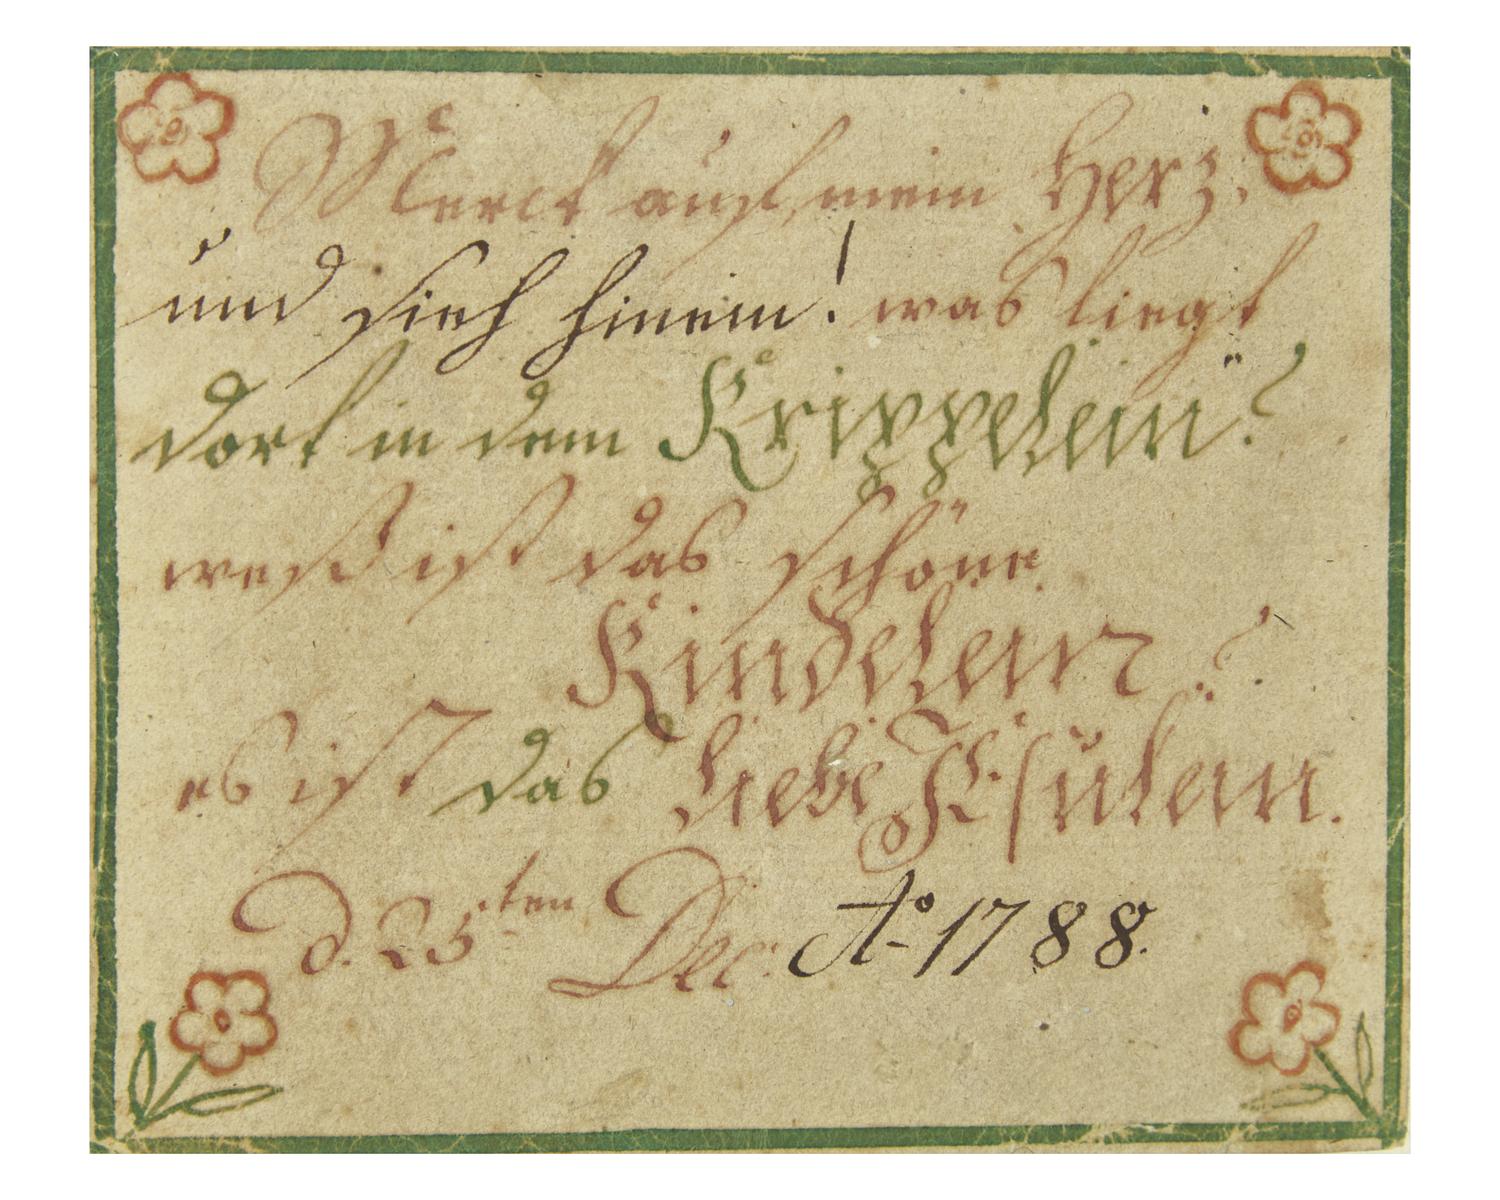 Merck auf mein Herz,
und sieh hinein! was liegt
dort in dem Krippelein?
weß ist das schöne
Kindelein?
es ist das liebe JEsulein.
d. 25.ten Dec: Ao 1788.